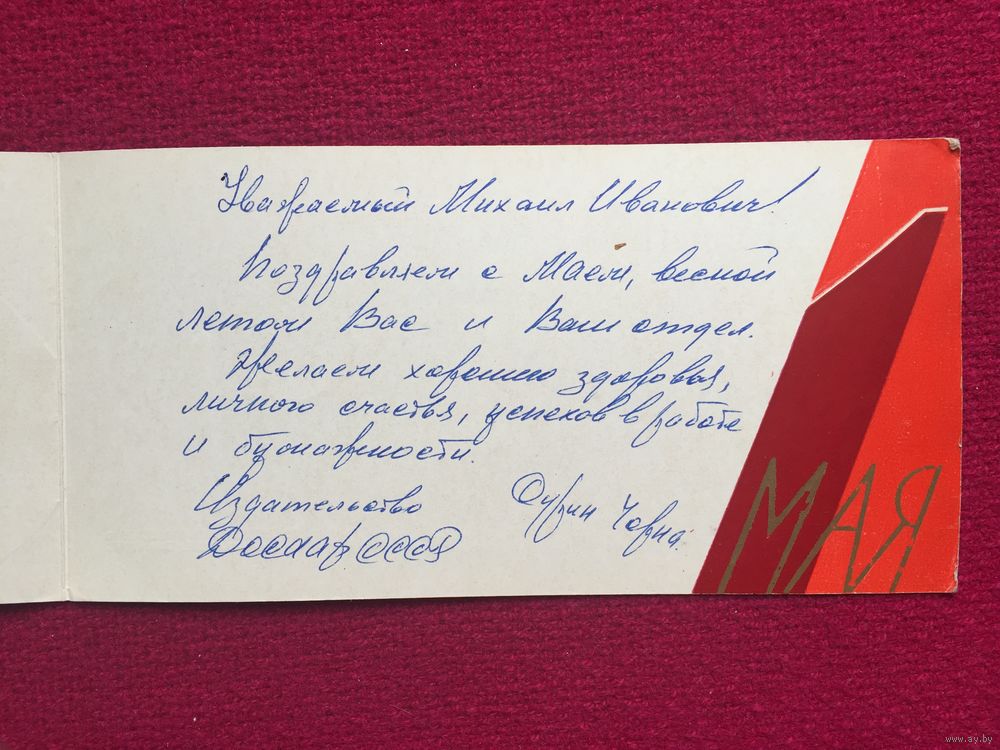 Уважаемый Михаил Иванович!
Поздравляем с Маем, весной
летом Вас и Ваш отдел.
Желаем хорошего здоровья,
личного счастья, успехов в работе
и бумажности.
Издательство
Досааф СССР
Сурин
1 МАЯ
www.ay.by